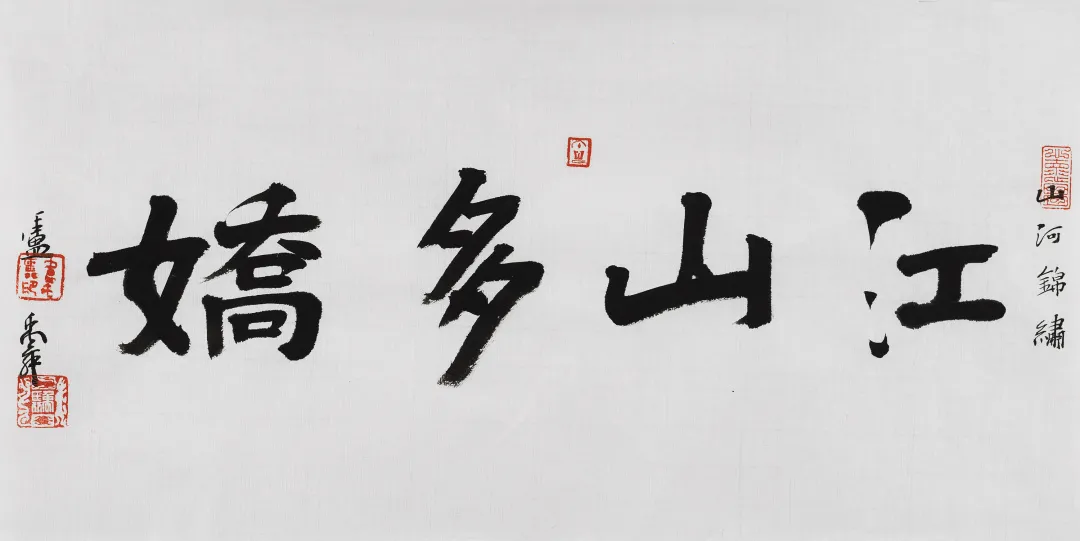 山河錦繡
江山多嬌